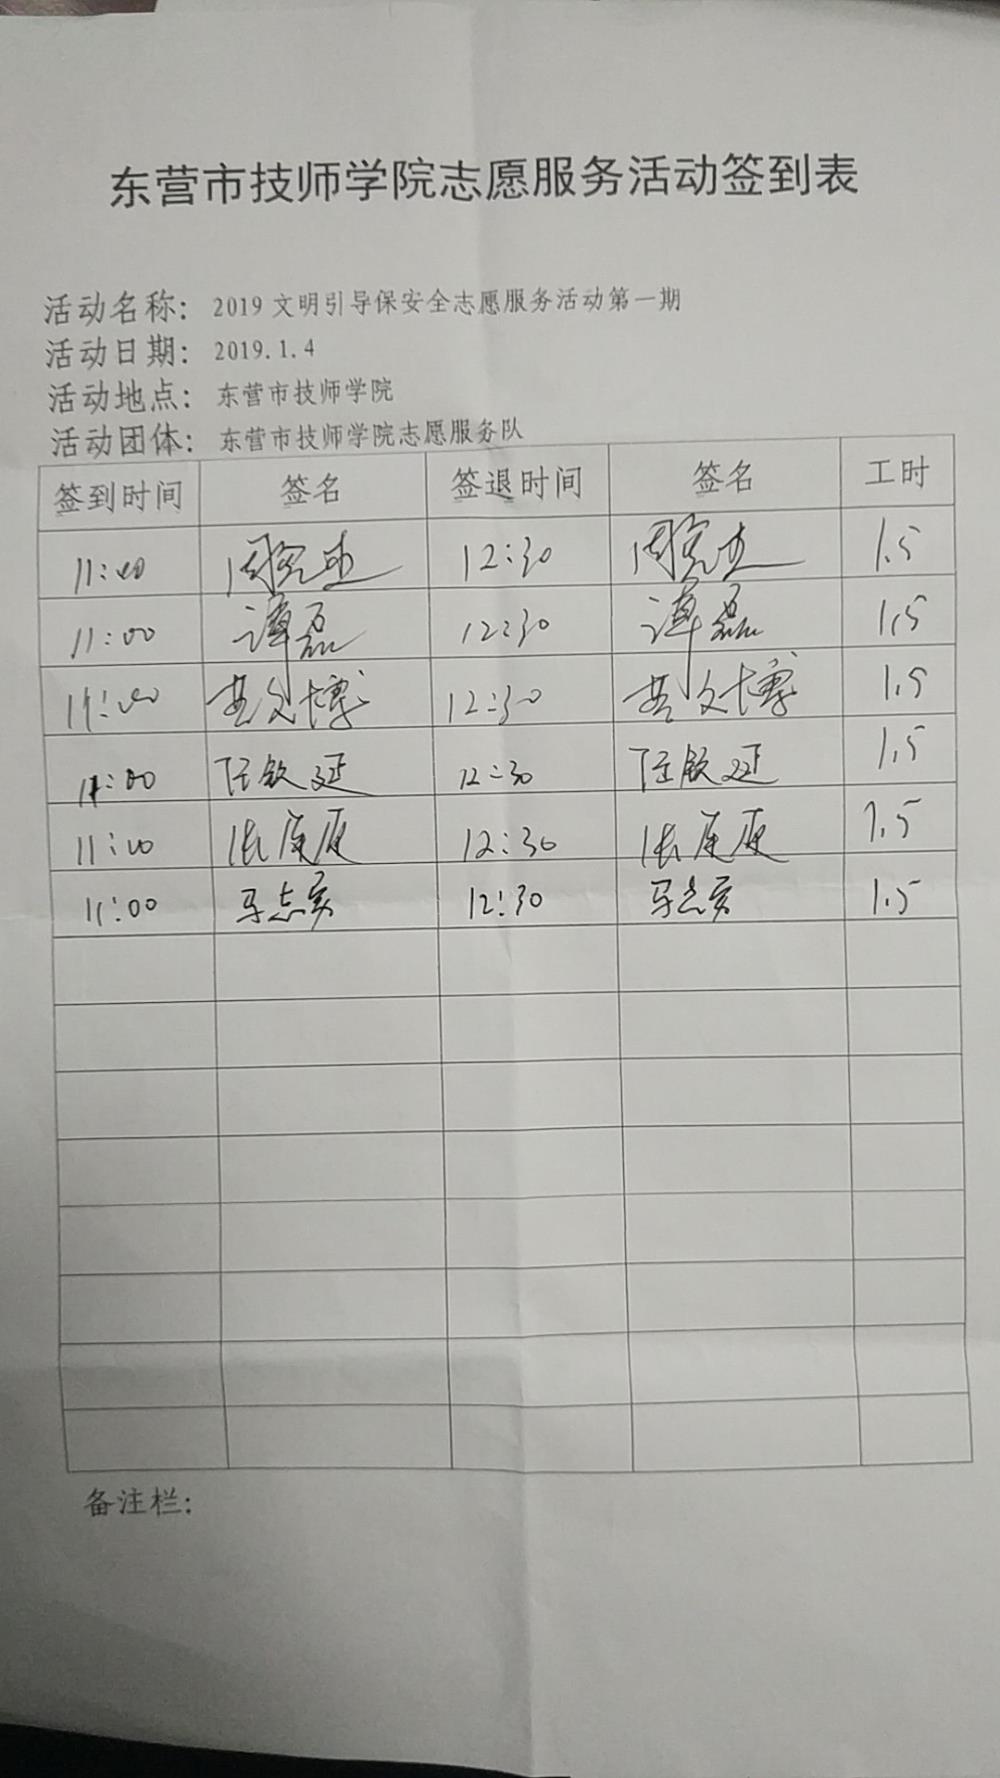 东营市技师学院志愿服务活动签到表
活动名称：2019 文明引导保安全志愿服务活动第一期
活动日期：2019.1.4
活动地点：东营市技师学院
活动团体：东营市技师学院志愿服务队
签到时间 签名 签退时间 签名 工时
11:00 12:30 1.5
11:00 谭磊 12:30 谭磊 1.5
11:00 12:30 1.5
11:00 任钦延 12:30 任钦延 1.5
11:00 12:30 1.5
11:00 马志家 12:30 马志家 1.5
备注栏：